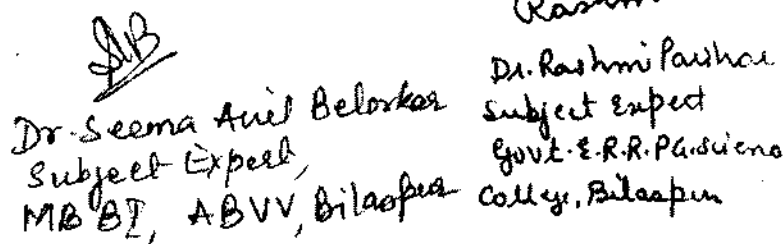 Dr. Seema Anil Belorkar
Subject Expert,
MB BI, ABVV, Bilaspur
Dr. Rashmi Parihar
Subject Expert
Govt. E.R.R. PG. Science
College, Bilaspur